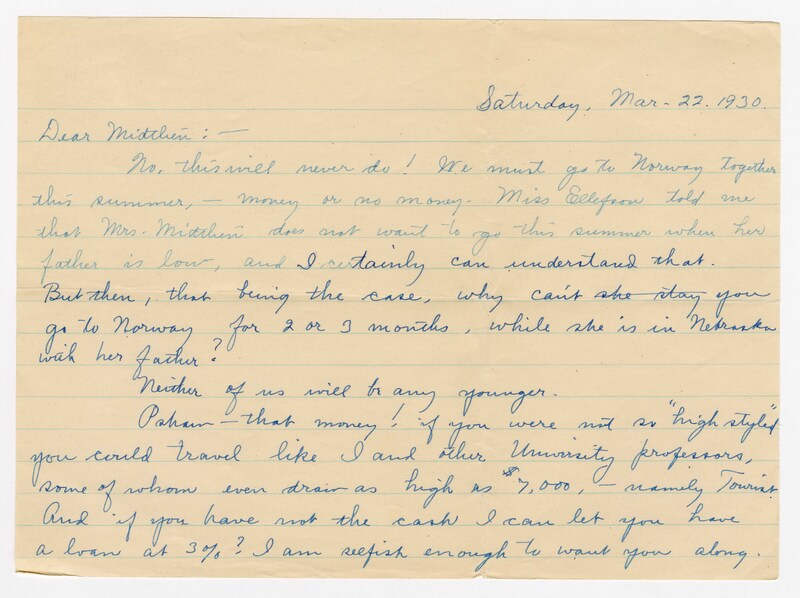 Saturday, Mar- 22. 1930.
Dear Midthen : —
No, this will never do! We must go to Norway together
this summer, — money or no money. Miss Ellefson told me
that Mrs. Midthen does not want to go this summer when her
father is low, and I certainly can understand that.
But then, that being the case, why can't she stay you
go to Norway for 2 or 3 months, while she is in Nebraska
with her father?
Neither of us will be any younger.
Pshaw — that money! if you were not so "high styled"
you could travel like I and other University professors,
some of whom even draw as high as $7,000, — namely Tourist.
And if you have not the cash I can let you have
a loan at 3%? I am selfish enough to want you along.